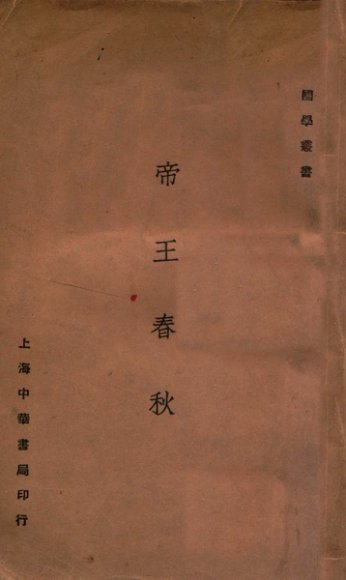 國學叢書
帝王春秋
上海中華書局印行